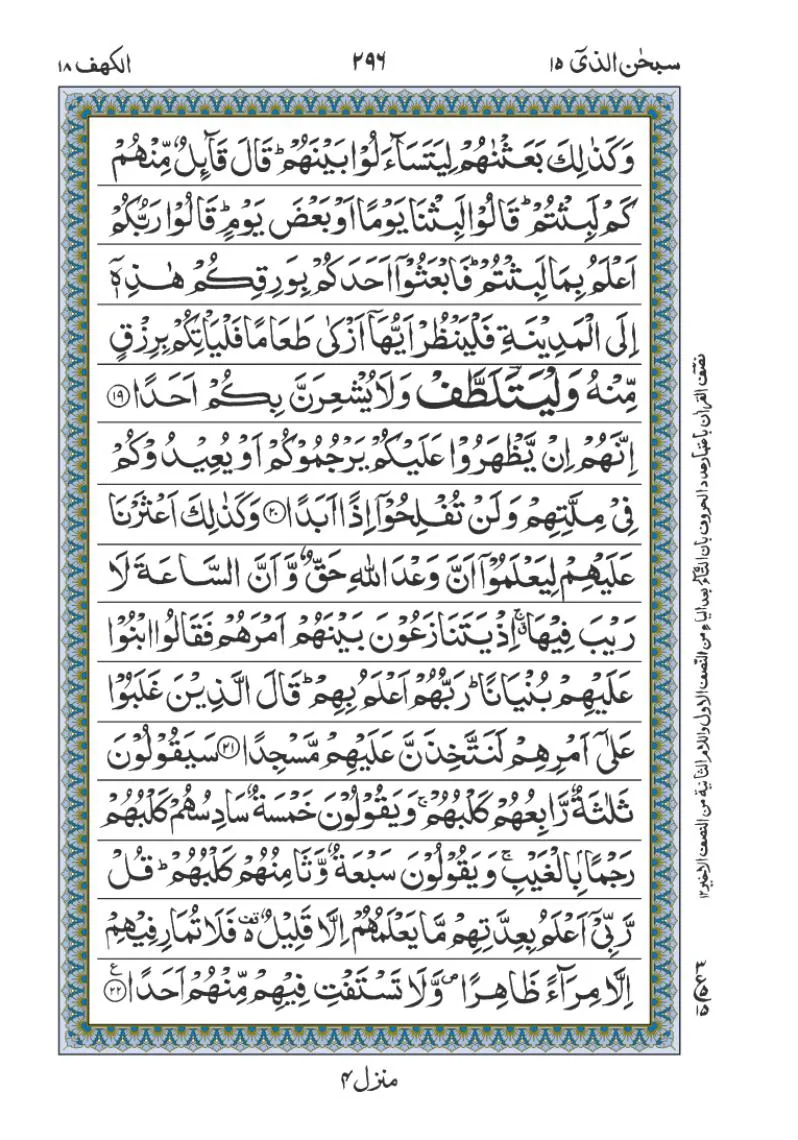 سبحٰن الذیٓ ۱۵
۲۹۶
الكهف ۱۸
وَكَذٰلِكَ بَعَثْنٰهُمْ لِيَتَسَآءَلُوْا بَيْنَهُمْ ؕ قَالَ قَآئِلٌ مِّنْهُمْ
كَمْ لَبِثْتُمْ ؕ قَالُوْا لَبِثْنَا يَوْمًا اَوْ بَعْضَ يَوْمٍ ؕ قَالُوْا رَبُّكُمْ
اَعْلَمُ بِمَا لَبِثْتُمْ ؕ فَابْعَثُوْۤا اَحَدَكُمْ بِوَرِقِكُمْ هٰذِهٖۤ
اِلَى الْمَدِيْنَةِ فَلْيَنْظُرْ اَيُّهَاۤ اَزْكٰى طَعَامًا فَلْيَاْتِكُمْ بِرِزْقٍ
مِّنْهُ وَلْيَتَلَطَّفْ وَلَا يُشْعِرَنَّ بِكُمْ اَحَدًا ۝۱۹
اِنَّهُمْ اِنْ يَّظْهَرُوْا عَلَيْكُمْ يَرْجُمُوْكُمْ اَوْ يُعِيْدُوْكُمْ
فِيْ مِلَّتِهِمْ وَلَنْ تُفْلِحُوْۤا اِذًا اَبَدًا ۝۲۰ وَكَذٰلِكَ اَعْثَرْنَا
عَلَيْهِمْ لِيَعْلَمُوْۤا اَنَّ وَعْدَ اللّٰهِ حَقٌّ وَّاَنَّ السَّاعَةَ لَا
رَيْبَ فِيْهَا ۚ اِذْ يَتَنَازَعُوْنَ بَيْنَهُمْ اَمْرَهُمْ فَقَالُوا ابْنُوْا
عَلَيْهِمْ بُنْيَانًا ؕ رَبُّهُمْ اَعْلَمُ بِهِمْ ؕ قَالَ الَّذِيْنَ غَلَبُوْا
عَلٰۤى اَمْرِهِمْ لَنَتَّخِذَنَّ عَلَيْهِمْ مَّسْجِدًا ۝۲۱ سَيَقُوْلُوْنَ
ثَلٰثَةٌ رَّابِعُهُمْ كَلْبُهُمْ ۚ وَيَقُوْلُوْنَ خَمْسَةٌ سَادِسُهُمْ كَلْبُهُمْ
رَجْمًۢا بِالْغَيْبِ ۚ وَيَقُوْلُوْنَ سَبْعَةٌ وَّثَامِنُهُمْ كَلْبُهُمْ ؕ قُلْ
رَّبِّيْۤ اَعْلَمُ بِعِدَّتِهِمْ مَّا يَعْلَمُهُمْ اِلَّا قَلِيْلٌ ۵ قف فَلَا تُمَارِ فِيْهِمْ
اِلَّا مِرَآءً ظَاهِرًا ۪ وَّلَا تَسْتَفْتِ فِيْهِمْ مِّنْهُمْ اَحَدًا ۝۲۲ ع
نصف القراٰن باعتبار عدد الحروف بأن التاء بعد الياء من النصف الاول واللام الثانية من النصف الاخير ۱۲
منزل ۴